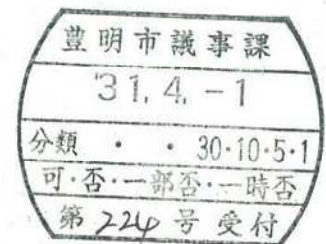 豊明市議事課
'31.4.-1
分類 ・ ・ 30・10・5・1
可・否・一部否・一時否
第 224 号 受付